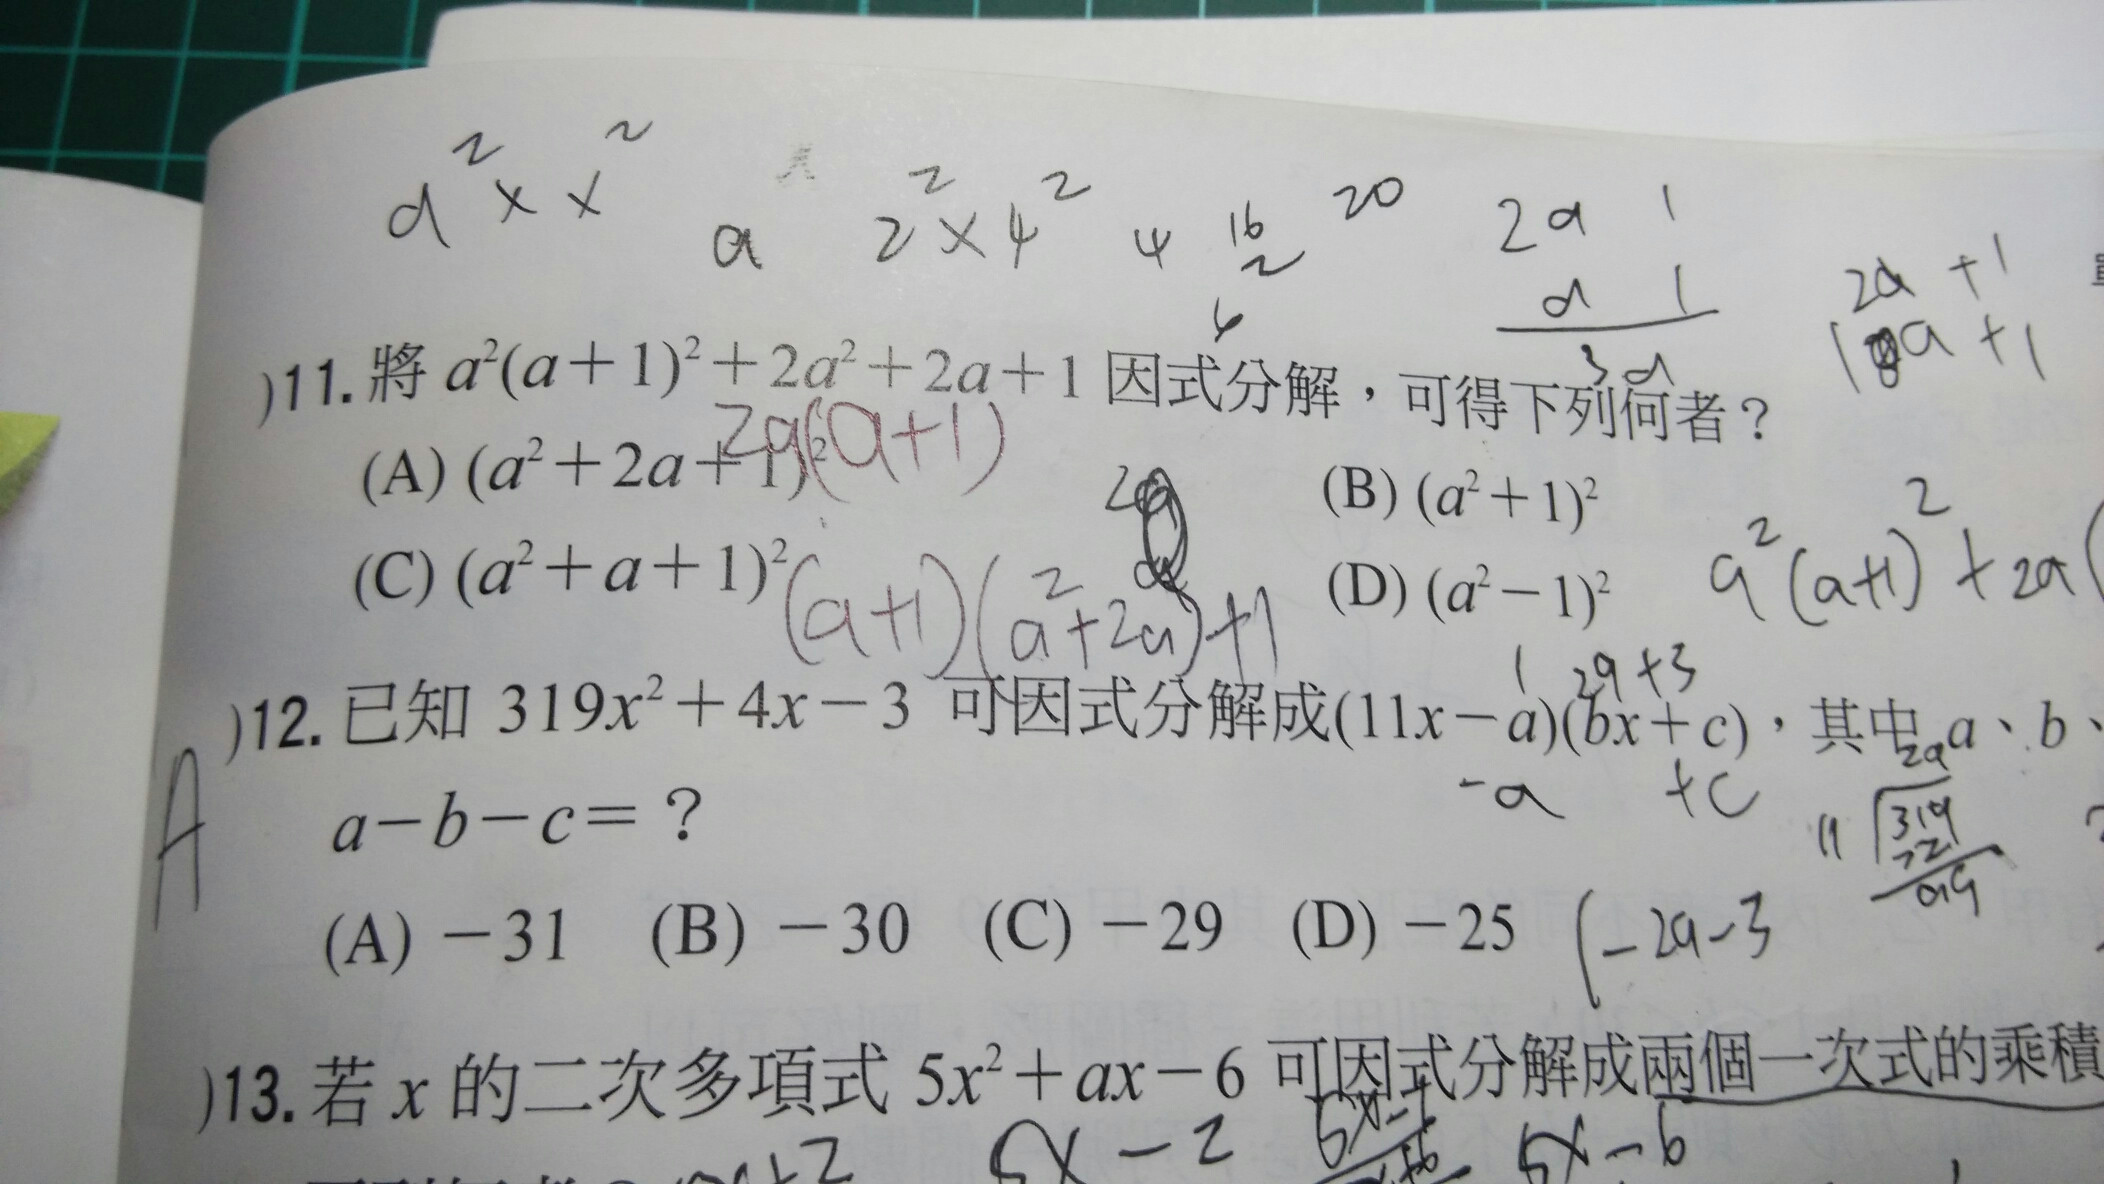 a² × x²
a 2² × 4² 4 16 20
2
6
2a 1
a 1
3a
2a +1
a +1
)11. 將 a²(a+1)²+2a²+2a+1 因式分解，可得下列何者？
2a(a+1)
(A) (a²+2a+1)² (B) (a²+1)²
(C) (a²+a+1)² (D) (a²−1)²
(a+1)(a²+2a)+1
a²(a+1)²+2a(
1 29+3
)12. 已知 319x²+4x−3 可因式分解成(11x−a)(bx+c)，其中 a、b、
-a +c
a−b−c=？
A
29
11 319
22
99
(A) −31 (B) −30 (C) −29 (D) −25
(-29-3
)13. 若 x 的二次多項式 5x²+ax−6 可因式分解成兩個一次式的乘積
5x-2 5x-6